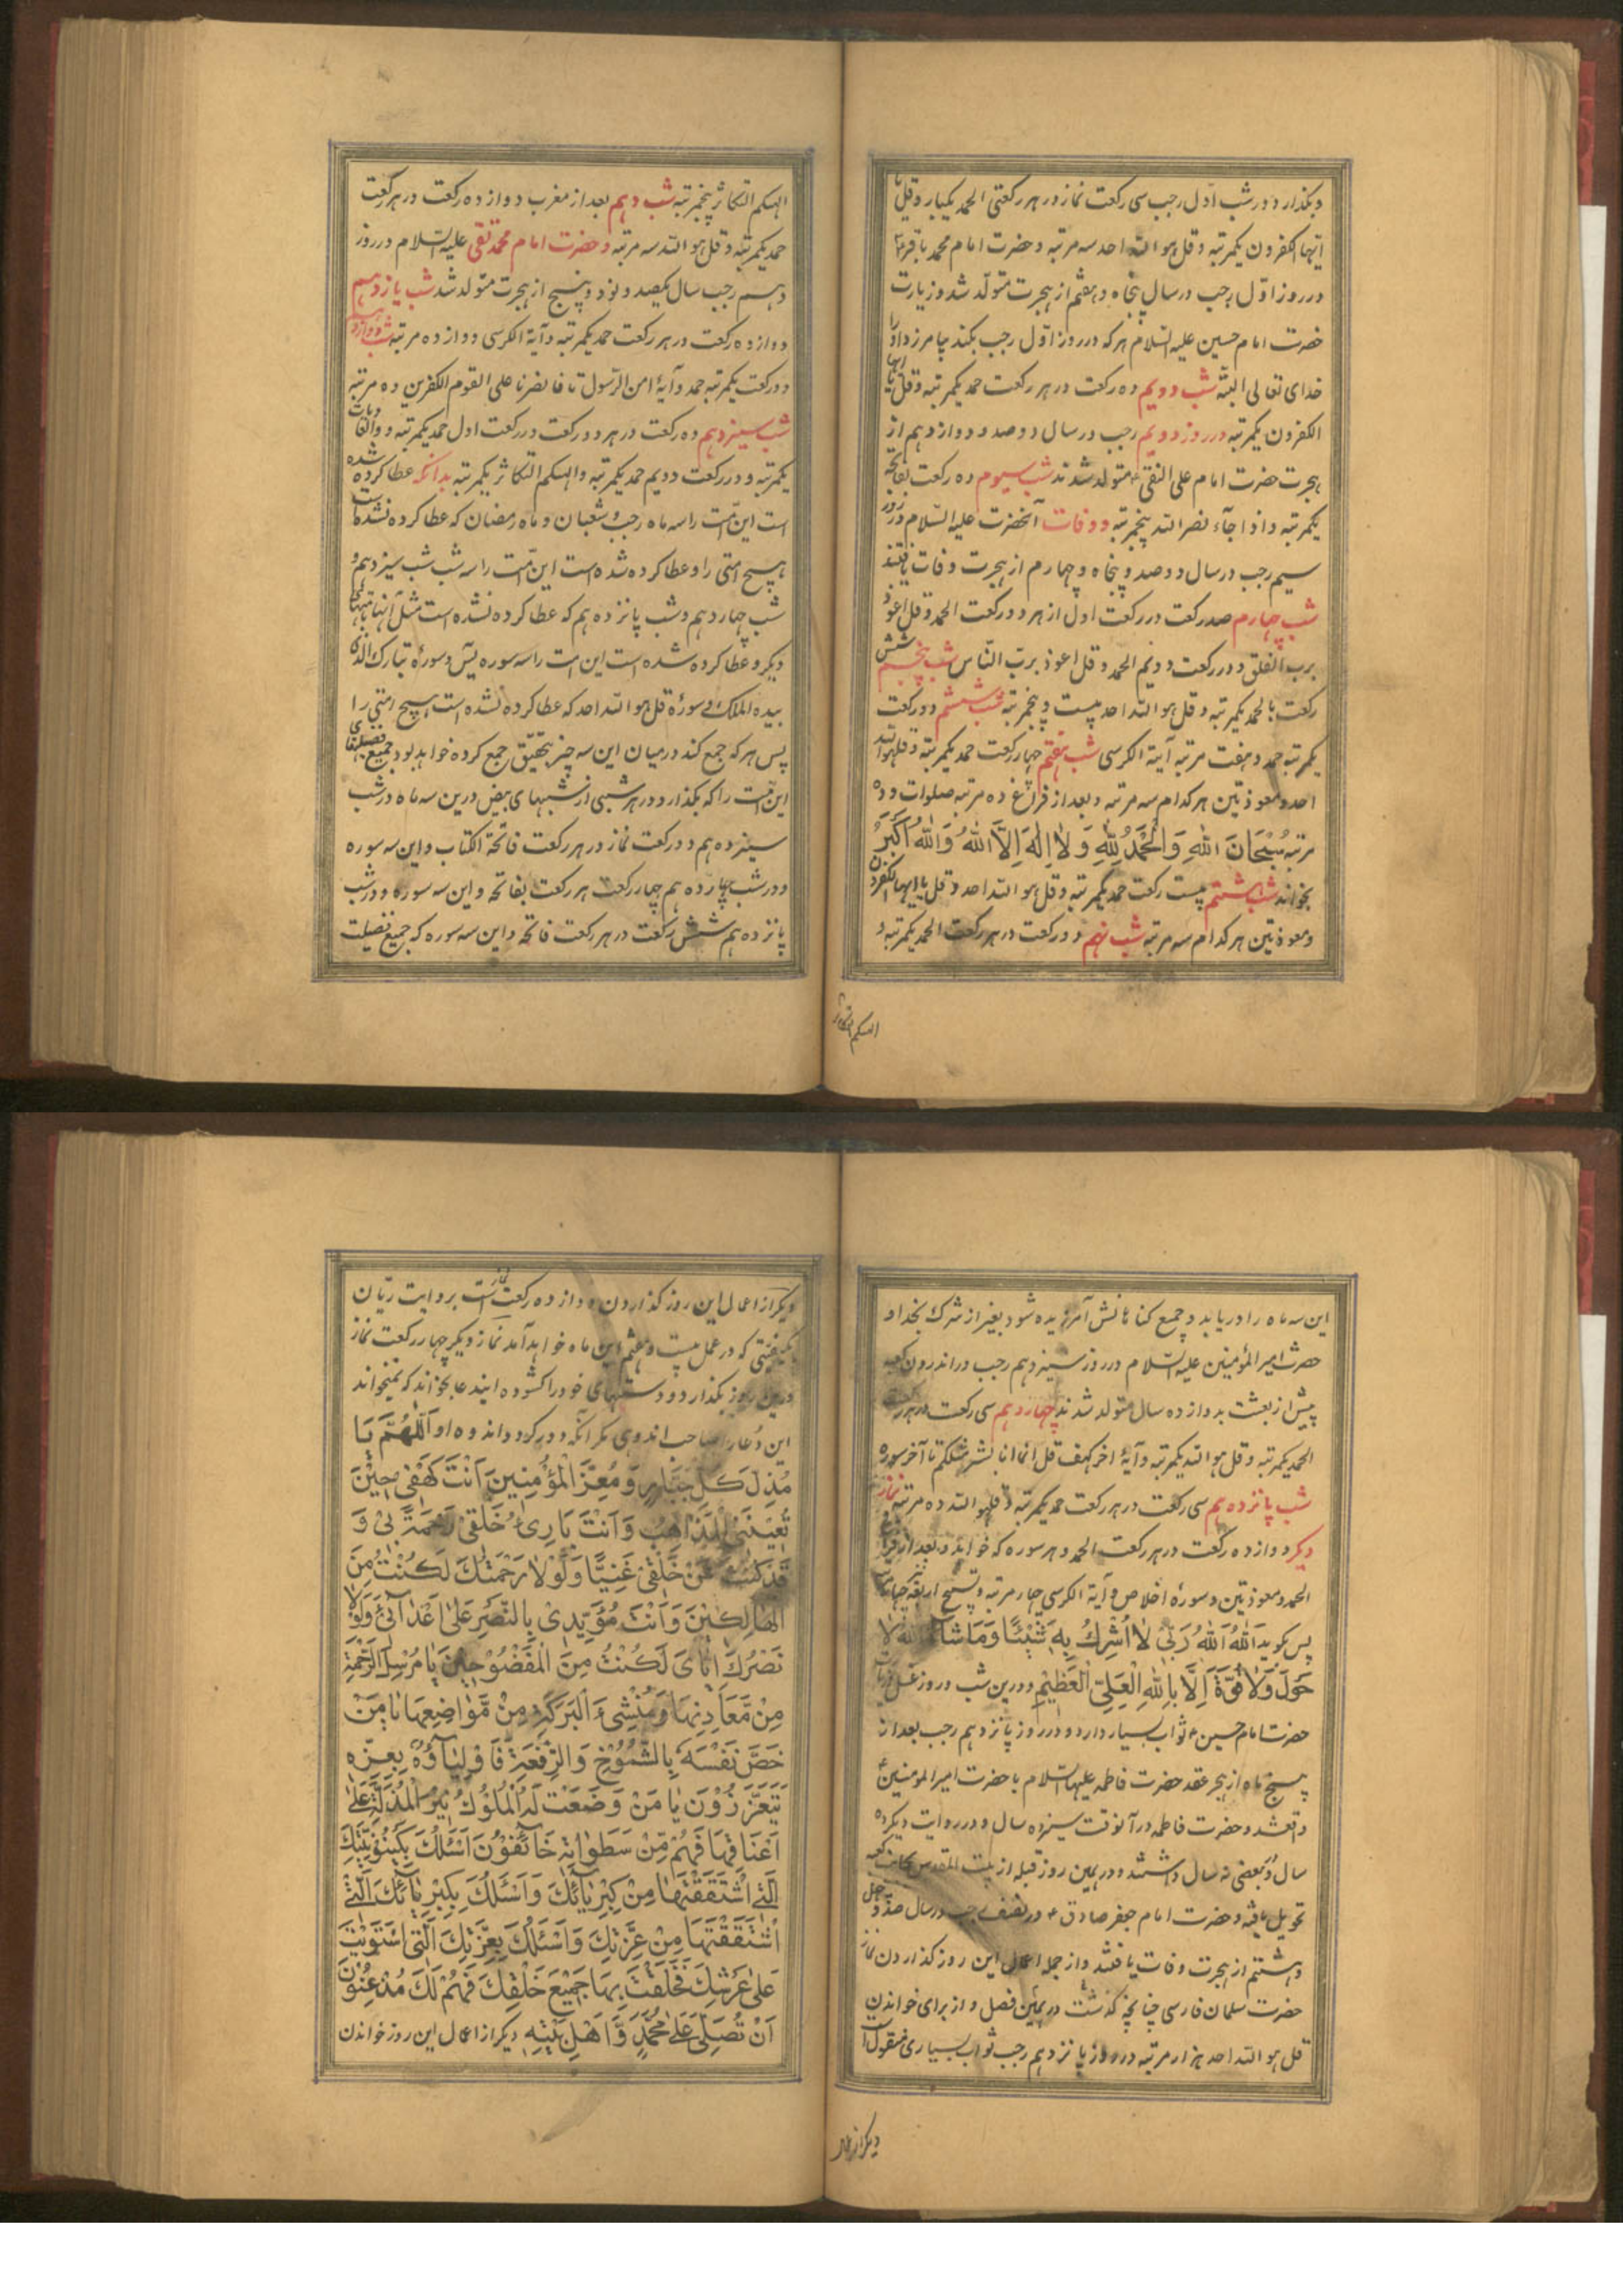 و بگذارد در شب اوّل رجب سی رکعت نماز در هر رکعتی الحمد یکبار و قل یا
ایها الکفرون یکمرتبه و قل هو الله احد سه مرتبه و حضرت امام محمد باقر ع
در روز اوّل رجب در سال پنجاه و هفتم از هجرت متولّد شد و زیارت
حضرت امام حسین علیه السّلام هر که در روز اوّل رجب بکند بیامرزد او را
خدای تعالی البته شب دویم ده رکعت در هر رکعت حمد یکمرتبه و قل یا ایها
الکفرون یکمرتبه در روز دویم رجب در سال دوصد و دوازدهم از
هجرت حضرت امام علی النقی ع متولد شدند شب سیوم ده رکعت بفاتحه
یکمرتبه و اذا جآء نصر الله پنجمرتبه و وفات آنحضرت علیه السّلام در روز
سیم رجب در سال دوصد و پنجاه و چهارم از هجرت وفات یافتند
شب چهارم صد رکعت در رکعت اول از هر دو رکعت الحمد و قل اعوذ
برب الفلق و در رکعت دویم الحمد و قل اعوذ بربّ النّاس شب پنجم شش
رکعت بالحمد یکمرتبه و قل هو الله احد بیست و پنجمرتبه شب ششم دو رکعت
یکمرتبه حمد و هفت مرتبه آیة الکرسی شب هفتم چهار رکعت حمد یکمرتبه و قل هو الله
احد و معوذتین هر کدام سه مرتبه و بعد از فراغ ده مرتبه صلوات و ده
مرتبه سُبْحَانَ اللهِ وَالْحَمْدُ لِلّٰهِ وَ لَا اِلٰهَ اِلَّا اللهُ وَاللهُ اَکْبَرُ
بخواند شب هشتم بیست رکعت حمد یکمرتبه و قل هو الله احد و قل یا ایها الکفرون
و معوذتین هر کدام سه مرتبه شب نهم دو رکعت در هر رکعت الحمد یکمرتبه و
الهیکم التکاثر
الهیکم التکاثر پنجمرتبه شب دهم بعد از مغرب دوازده رکعت در هر رکعت
حمد یکمرتبه و قل هو الله سه مرتبه و حضرت امام محمد تقی علیه السّلام در روز
دهم رجب سال یکصد و نود و پنج از هجرت متولد شد شب یازدهم
دوازده رکعت در هر رکعت حمد یکمرتبه و آیة الکرسی دوازده مرتبه شب دوازدهم
دو رکعت یکمرتبه حمد و آیهٔ امن الرّسول تا فانصرنا علی القوم الکفرین ده مرتبه
شب سیزدهم ده رکعت در هر دو رکعت در رکعت اول حمد یکمرتبه و والعادیات
یکمرتبه و در رکعت دویم حمد یکمرتبه و الهیکم التکاثر یکمرتبه بدانکه عطا کرده شده
است این امّت را سه ماه رجب و شعبان و ماه رمضان که عطا کرده نشده است
هیچ امتی را و عطا کرده شده است این امّت را سه شب شب سیزدهم و
شب چهاردهم و شب پانزدهم که عطا کرده نشده است مثل آنها امتهای
دیگر و عطا کرده شده است این امت را سه سوره یٰس و سورهٔ تبارک الذی
بیده الملک و سورهٔ قل هو الله احد که عطا کرده نشده است هیچ امتی را
پس هر که جمع کند درمیان این سه چیز بتحقیق جمع کرده خواهد بود جمیع فضیلتهای
این امّت را که بگذارد در هر شبی از شبهای بیض درین سه ماه در شب
سیزدهم دو رکعت نماز در هر رکعت فاتحة الکتاب و این سه سوره
و در شب چهاردهم چهار رکعت هر رکعت بفاتحه و این سه سوره و در شب
پانزدهم شش رکعت در هر رکعت فاتحه و این سه سوره که جمیع فضیلت
این سه ماه را دریابد و جمیع گناهانش آمرزیده شود بغیر از شرک بخدا و
حضرت امیر المؤمنین علیه السّلام در روز سیزدهم رجب در اندرون کعبه
پیش از بعثت بدوازده سال متولد شدند چهاردهم سی رکعت در هر رکعت
الحمد یکمرتبه و قل هو الله یکمرتبه و آیهٔ اخر کهف قل انما انا بشر مثلکم تا آخر سوره
شب پانزدهم سی رکعت در هر رکعت حمد یکمرتبه و قل هو الله ده مرتبه نماز
دیگر دوازده رکعت در هر رکعت الحمد و هر سوره که خواهد و بعد از فراغ
الحمد و معوذتین و سورهٔ اخلاص و آیة الکرسی چهار مرتبه و تسبیح اربعه
پس گوید اَللهُ اَللهُ رَبّی لَا اُشْرِكُ بِهِ شَیْئًا وَمَا شَآءَ اللهُ لَا
حَوْلَ وَلَا قُوَّةَ اِلَّا بِاللهِ الْعَلِیِّ الْعَظِیْمِ و درین شب و روز غسل و زیارت
حضرت امام حسین ع ثواب بسیار دارد و در روز پانزدهم رجب بعد از
پنج ماه از هجرت عقد حضرت فاطمه علیها السلام با حضرت امیر المومنین ع
واقعشد و حضرت فاطمه در آنوقت سیزده سال و در روایت دیگر ده
سال و بعضی نه سال داشتند و در همین روز قبله از بیت المقدس بجانب کعبه
تحویل یافته و حضرت امام جعفر صادق ع در نصف رجب در سال صد و چهل
و هشتم از هجرت وفات یافتند و از جمله اعمال این روز گذاردن نماز
حضرت سلمان فارسی چنانچه گذشت در همین فصل و از برای خواندن
قل هو الله احد هزار مرتبه در روز پانزدهم رجب ثواب بسیاری منقول
دیگر از اعمال
دیگر از اعمال این روز گذاردن دوازده رکعت نماز است بروایت ریّان
بکیفیتی که در عمل بیست و هفتم این ماه خواهد آمد نماز دیگر چهار رکعت نماز
درین روز بگذارد و دستهای خود را گشوده ایندعا بخواند که نمیخواند
این دعا را صاحب اندوهی مگر آنکه دور گردد اندوه او اَللّٰهُمَّ یَا
مُذِلَّ کُلِّ جَبَّارٍ وَ مُعِزَّ الْمُؤْمِنِینَ اَنْتَ کَهْفِی حِیْنَ
تُعْیِیْنِی الْمَذَاهِبُ وَ اَنْتَ بَارِئُ خَلْقِیْ رَحْمَةً بِیْ وَ
قَدْ کُنْتَ عَنْ خَلْقِیْ غَنِیًّا وَلَوْلَا رَحْمَتُكَ لَکُنْتُ مِنَ
الْهَالِکِیْنَ وَ اَنْتَ مُؤَیِّدِیْ بِالنَّصْرِ عَلٰی اَعْدَآئِیْ وَلَوْلَا
نَصْرُكَ اِیَّایَ لَکُنْتُ مِنَ الْمَفْضُوْحِیْنَ یَا مُرْسِلَ الرَّحْمَةِ
مِنْ مَّعَادِنِهَا وَ مُنْشِئَ الْبَرَکَةِ مِنْ مَّوَاضِعِهَا یَا مَنْ
خَصَّ نَفْسَهٗ بِالشُّمُوْخِ وَ الرِّفْعَةِ فَاَوْلِیَآؤُهٗ بِعِزِّهٖ
یَتَعَزَّزُوْنَ یَا مَنْ وَضَعَتْ لَهُ الْمُلُوْكُ نِیْرَ الْمَذَلَّةِ عَلٰی
اَعْنَاقِهَا فَهُمْ مِّنْ سَطَوَاتِهٖ خَآئِفُوْنَ اَسْئَلُكَ بِکَیْنُوْنِیَّتِكَ
الَّتِیْ اشْتَقَقْتَهَا مِنْ کِبْرِیَآئِكَ وَ اَسْئَلُكَ بِکِبْرِیَآئِكَ الَّتِیْ
اشْتَقَقْتَهَا مِنْ عِزَّتِكَ وَ اَسْئَلُكَ بِعِزَّتِكَ الَّتِی اسْتَوَیْتَ
عَلٰی عَرْشِكَ فَخَلَقْتَ بِهَا جَمِیْعَ خَلْقِكَ فَهُمْ لَكَ مُذْعِنُوْنَ
اَنْ تُصَلِّیَ عَلٰی مُحَمَّدٍ وَّ اَهْلِ بَیْتِهٖ دیگر از اعمال این روز خواندن